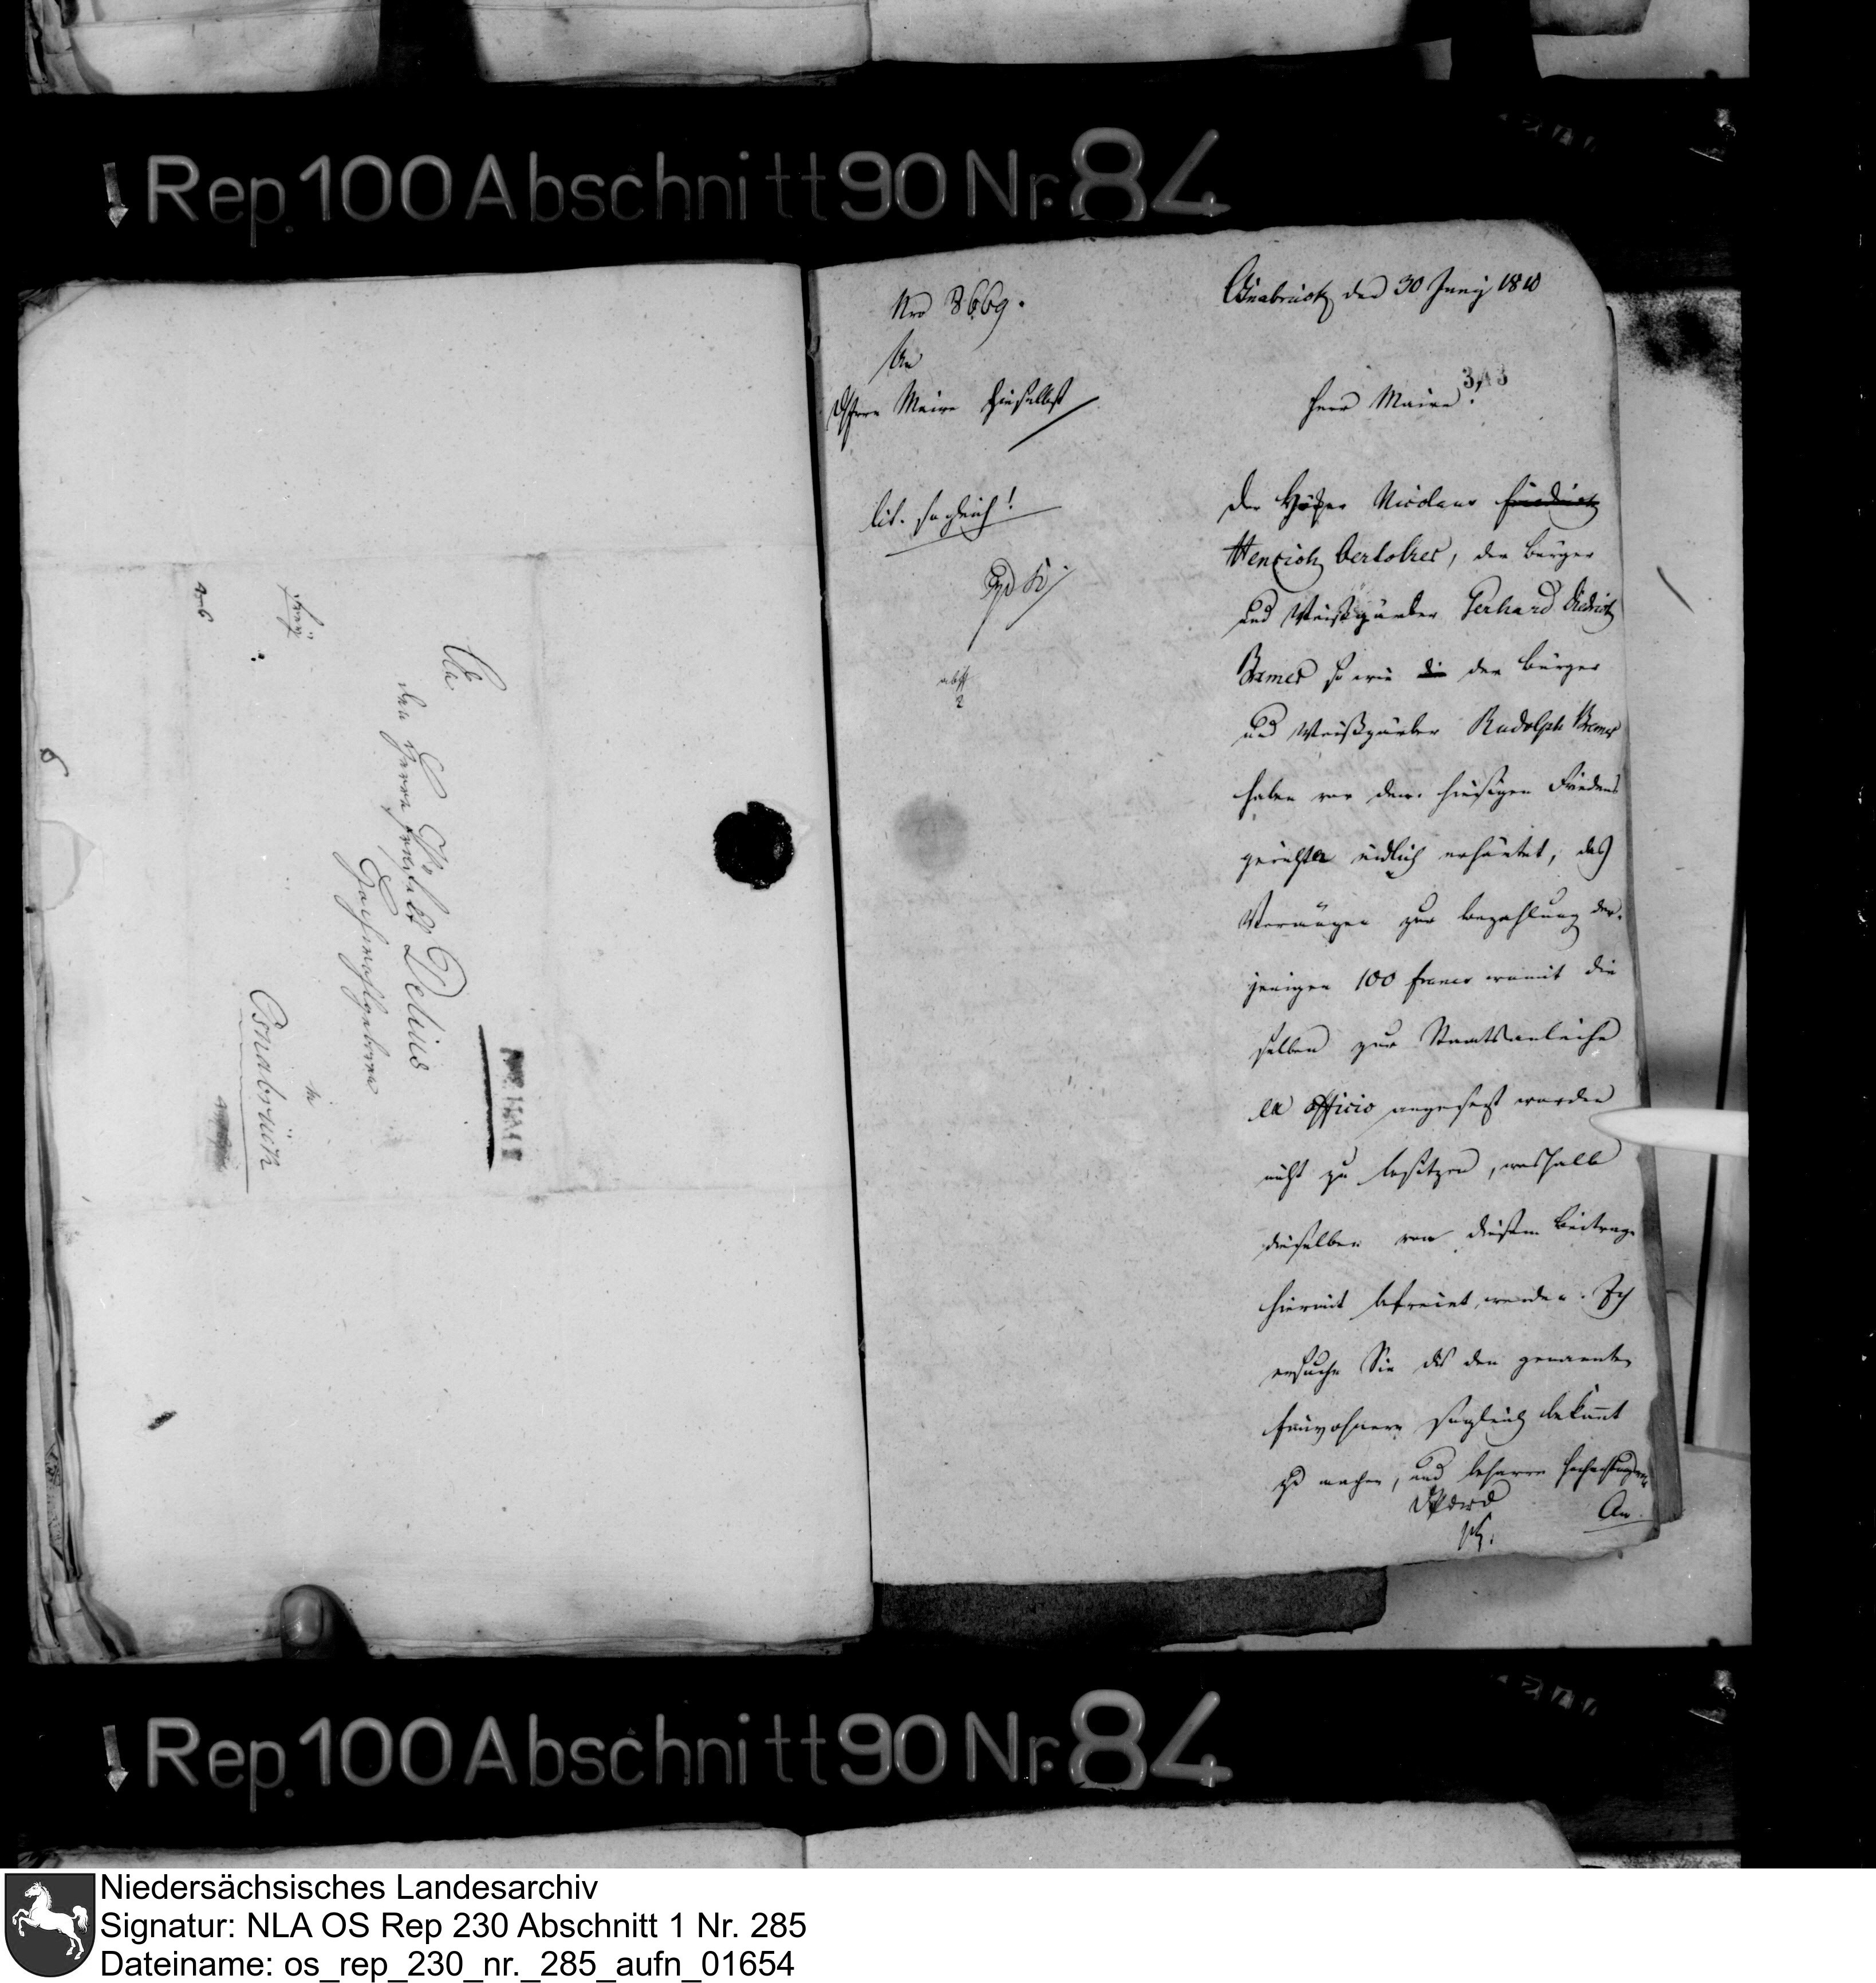 Rep. 100 Abschnitt 90 Nr. 84
An
Sr. Wohl
den Herrn Präfect Delius
Hochwohlgebohren
in
Osnabrück
frey
Nro 8669.
An
Herrn Maire hieselbst
cit. sogleich!
Osnabrück den 30 Juny 1810
343
Herr Maire!
Der Höker Nicolaus Friedrich
Henrich, der Bürger
und Weißgärber Gerhard Diedrich
Bremer so wie die der Bürger
und Weißgärber Rudolph Bremer
haben vor dem hiesigen Friedens
gerichte eidlich erhärtet, das
Vermögen zur Bezahlung der-
jenigen 100 Francs womit die
selben zur Staatsanleihe
ex officio angesetzt worden
nicht zu besitzen, weshalb
dieselben von diesem Beitrage
hiermit befreiet werden. Ich
ersuche Sie dies den genannten
Einwohnern sogleich bekannt
zu machen, und beharre hochachtungsvoll
Rep. 100 Abschnitt 90 Nr. 84
Niedersächsisches Landesarchiv
Signatur: NLA OS Rep 230 Abschnitt 1 Nr. 285
Dateiname: os_rep_230_nr._285_aufn_01654